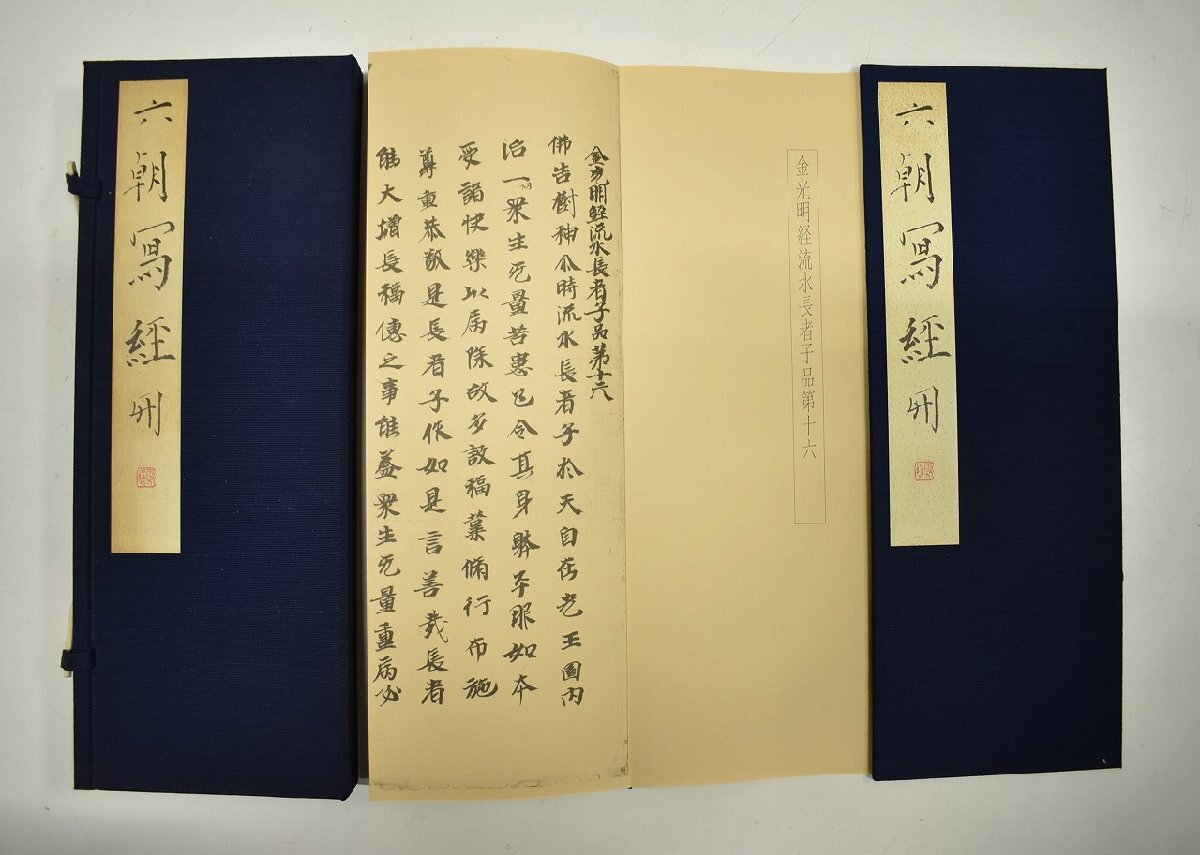 六朝寫經冊
金光明経流水長者子品第十六
金光明經流水長者子品第十六
佛告樹神尒時流水長者子於天自在光王國内
治一切眾生无量苦患已令其身體平服如本
受諸快樂以病除故多設福業脩行布施
尊重恭敬是長者子作如是言善哉長者
能大增長福德之事能益眾生无量重病必
六朝寫經冊